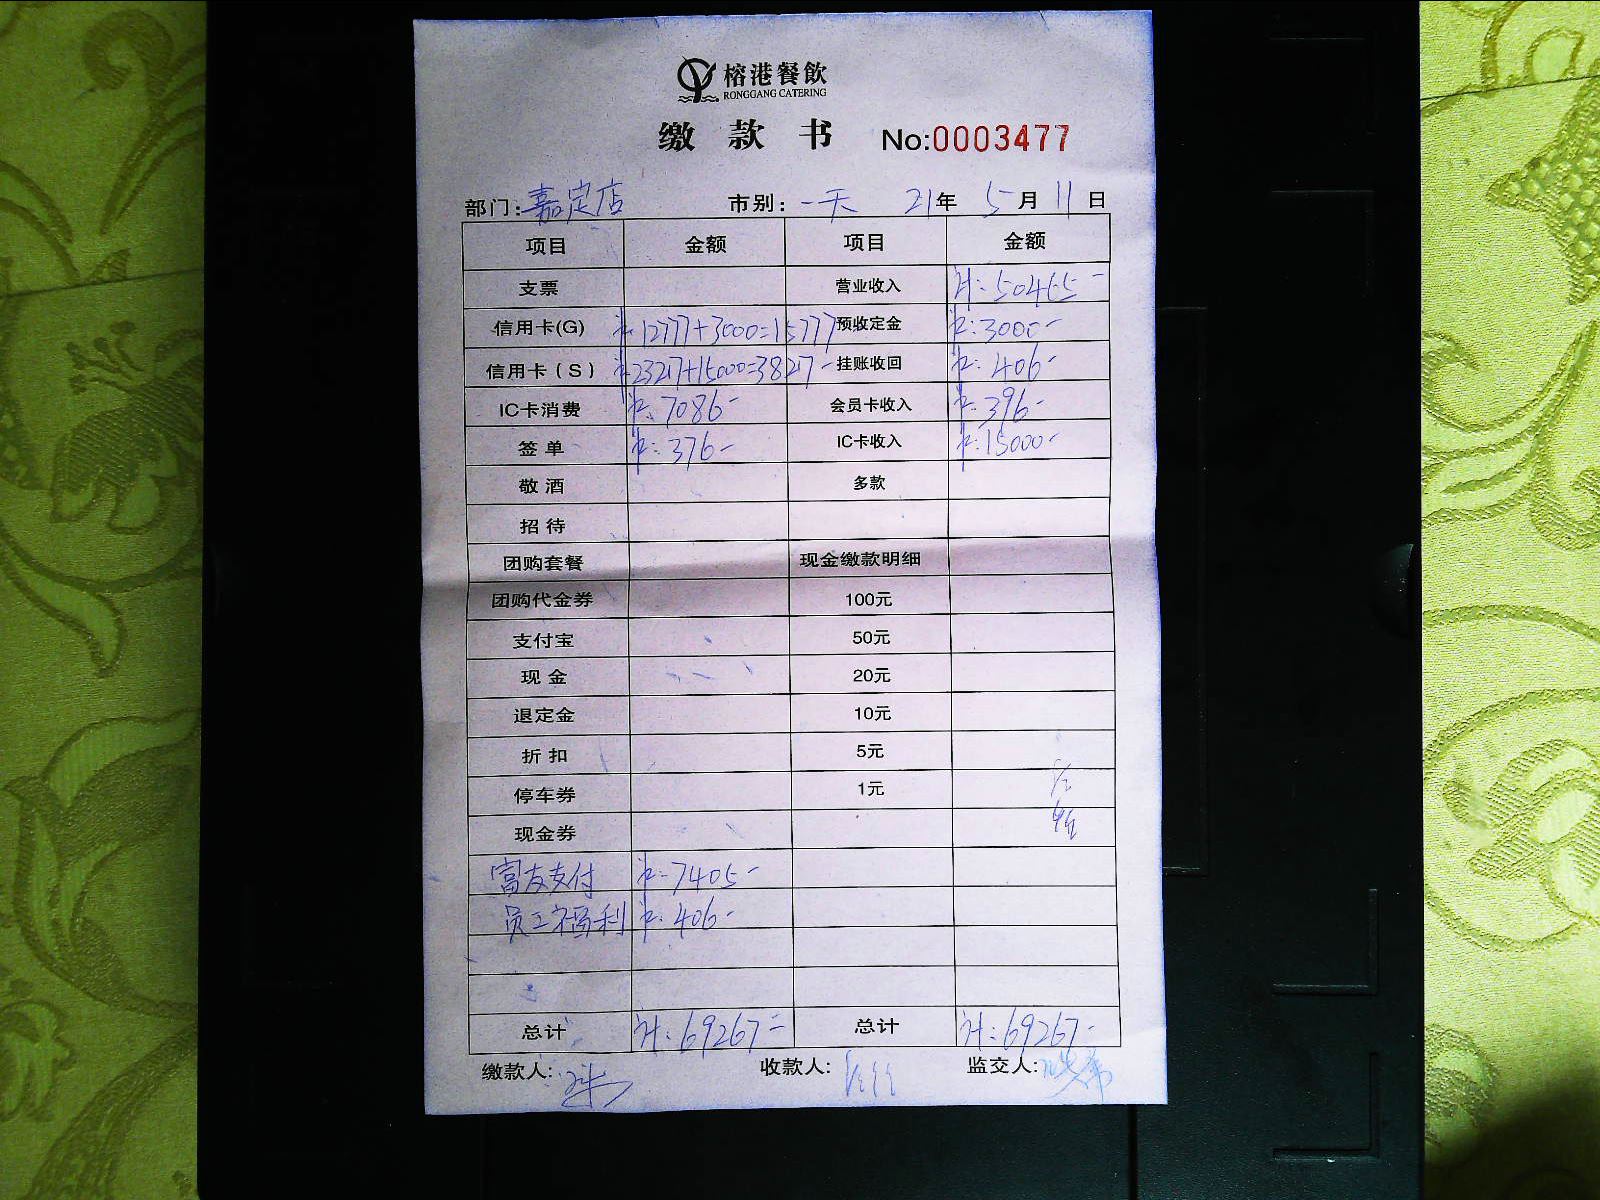 榕港餐飲
RONGGANG CATERING
缴款书 No:0003477
部门:嘉定店 市别:一天 21年 5月 11日
项目 金额 项目 金额
支票 营业收入 计:50465-
信用卡(G) 12777+3000=15777 预收定金 计:3000-
信用卡(S) 23217+15000=38217- 挂账收回 计:406-
IC卡消费 计:7086- 会员卡收入 计:396-
签单 计:376- IC卡收入 计:15000-
敬酒 多款
招待
团购套餐 现金缴款明细
团购代金券 100元
支付宝 50元
现金 20元
退定金 10元
折扣 5元
停车券 1元
现金券
富友支付 计:7405-
员工福利 计:406-
总计 计:69267- 总计 计:69267-
缴款人: 收款人: 监交人: